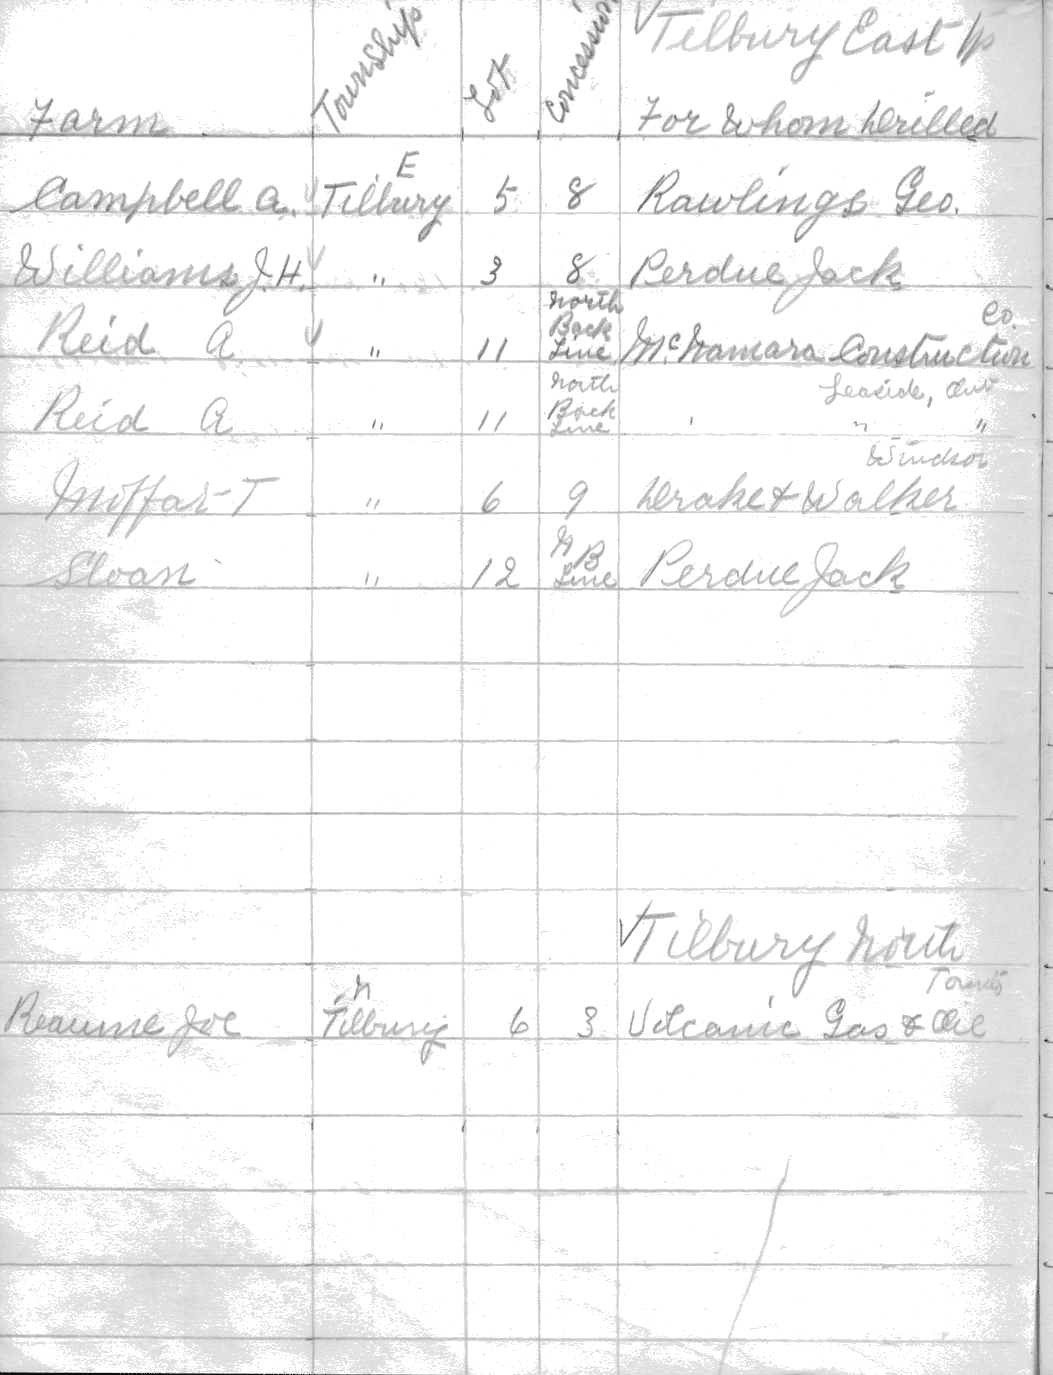 ✓ Tilbury East
Farm Township Lot Concession For Whom Drilled
Campbell A. ✓ Tilbury E 5 8 Rawlings Geo.
Williams J.H. ✓ " 3 8 Perdue Jack
Reid A ✓ " 11 North Back Line McNamara Construction Co.
Leaside, Ont
Reid A " 11 North Back Line " " "
Windsor
Moffat T " 6 9 Drake & Walker
Sloan " 12 N B Line Perdue Jack
✓ Tilbury North
Reaume Joe N Tilbury 6 3 Volcanic Gas & Oil